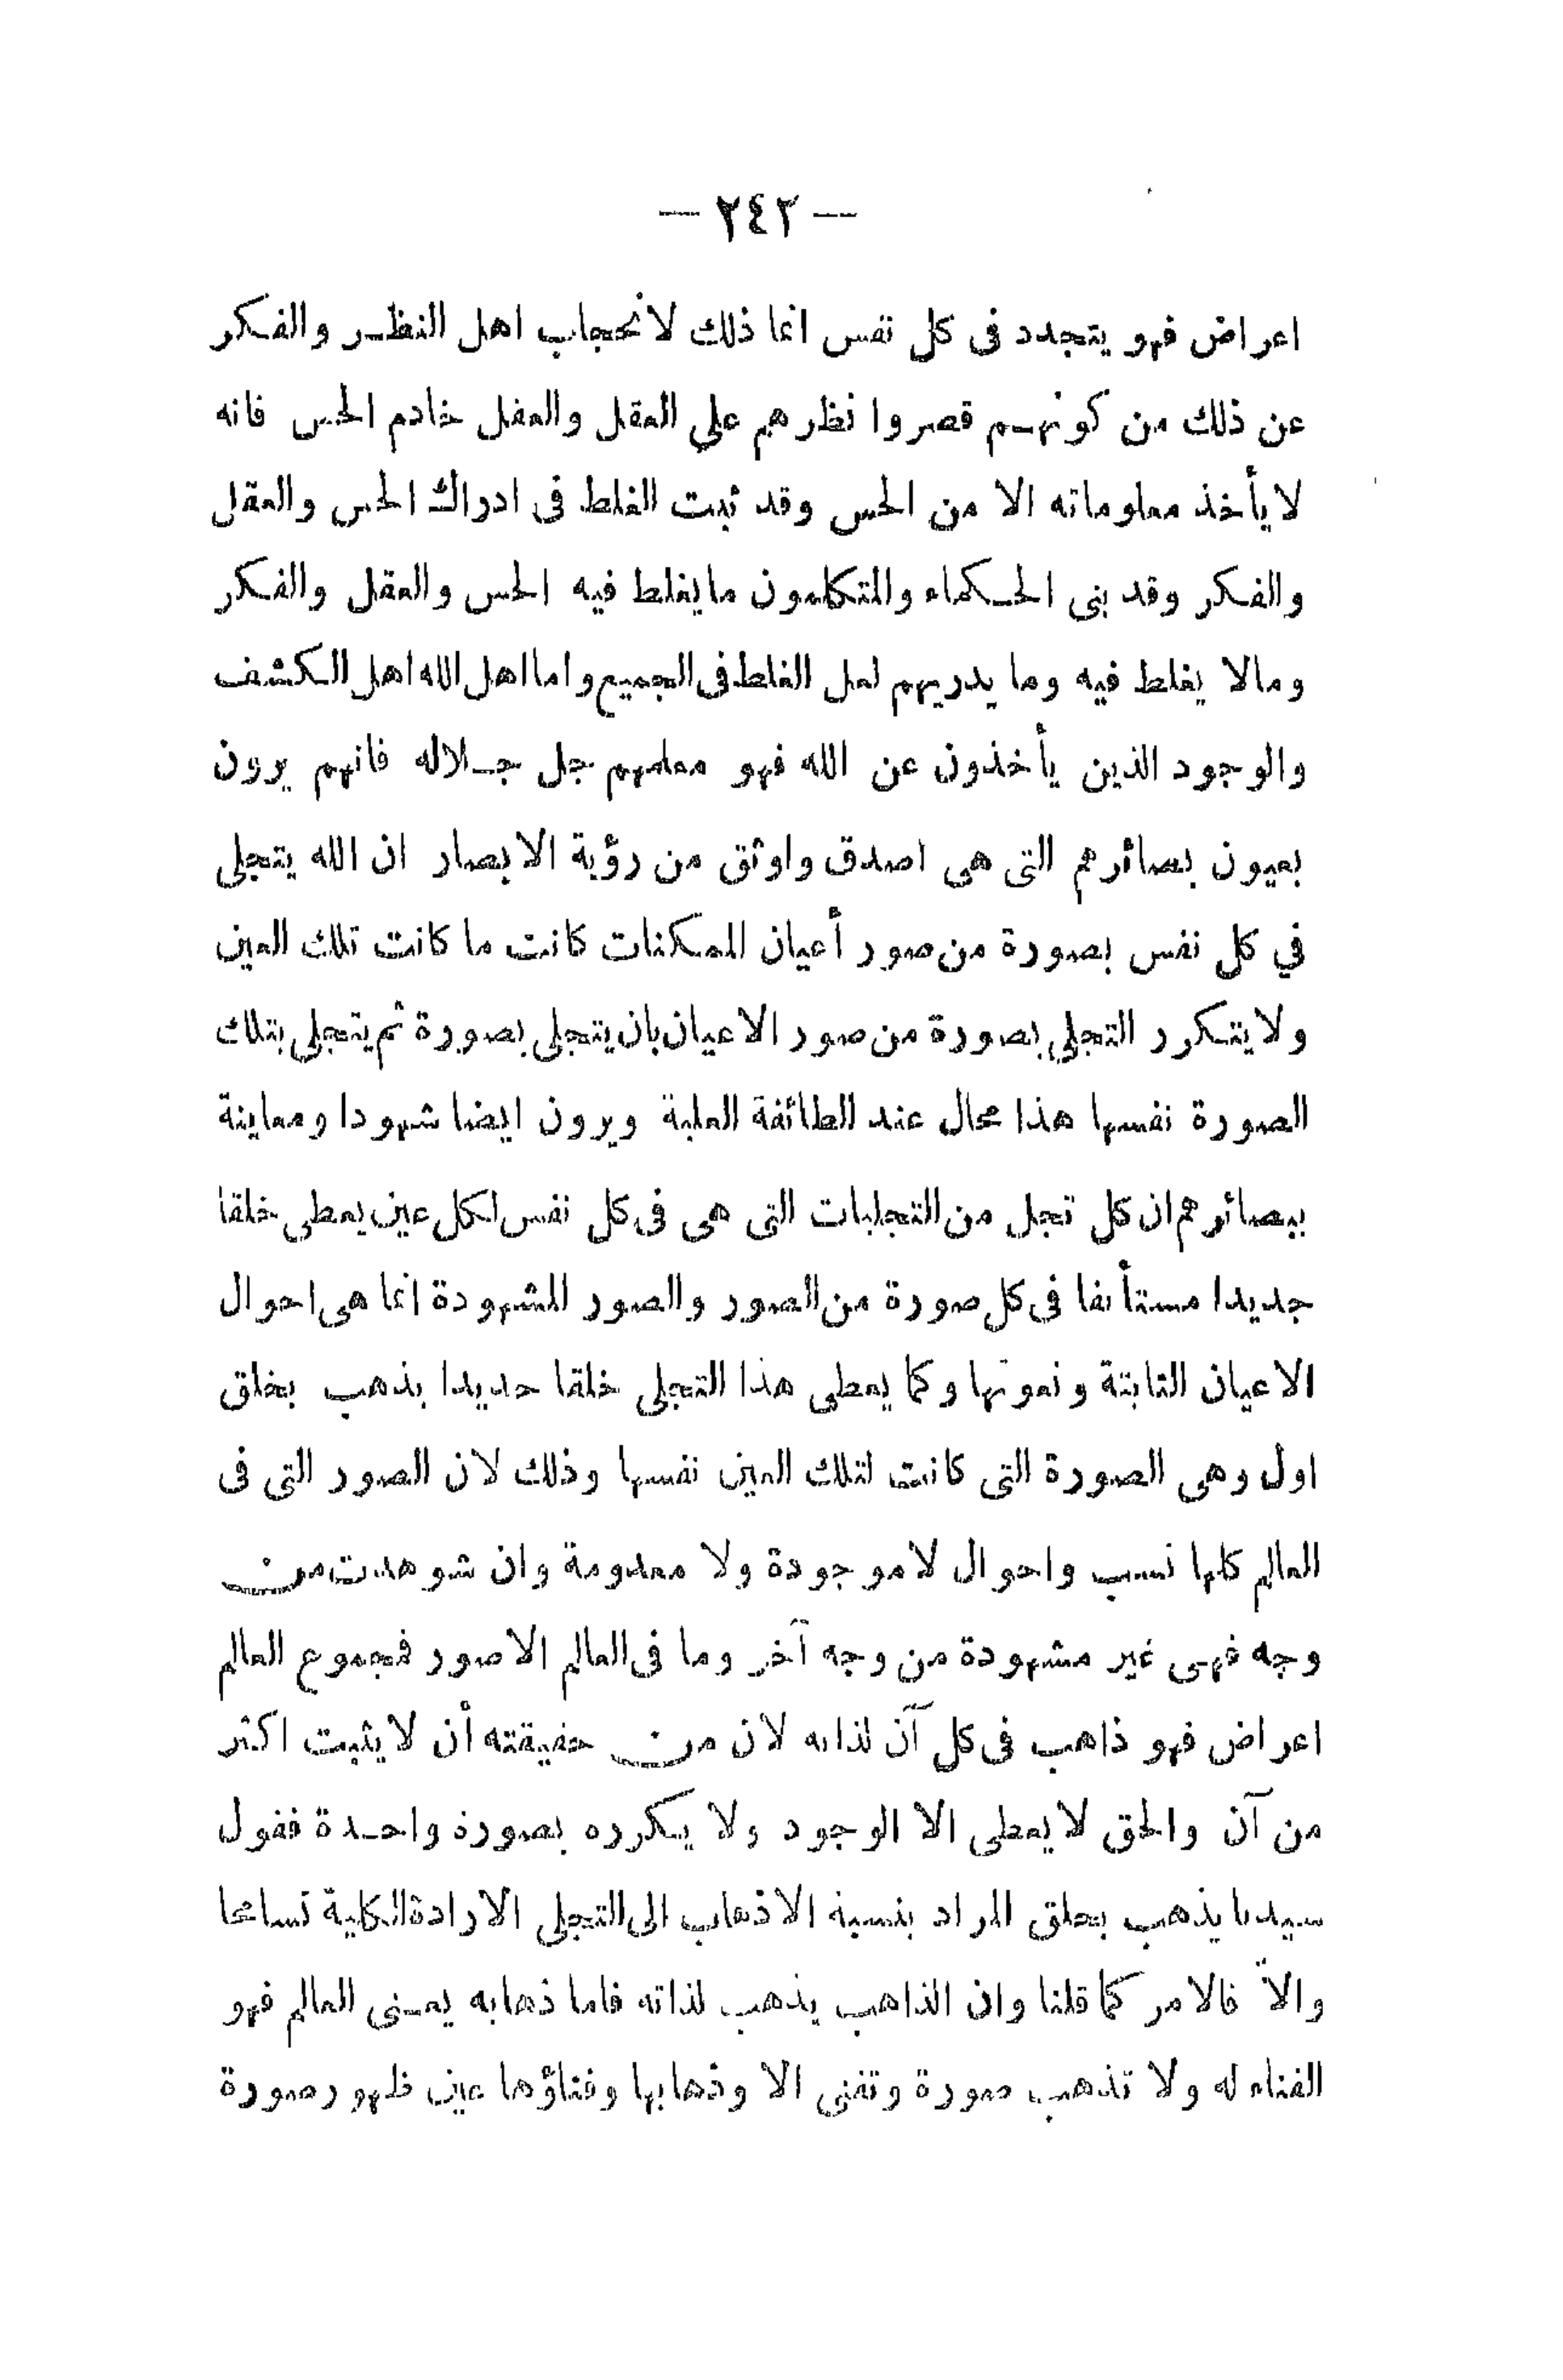 — ٢٤٢ —
اعراض فهو يتجدد فى كل نفس انما ذلك لانحجاب اهل النظر والفكر
عن ذلك من كونهم قصروا نظرهم علي العقل والعقل خادم الحس فانه
لايأخذ معلوماته الا من الحس وقد ثبت الغلط فى ادراك الحس والعقل
والفكر وقد بنى الحكماء والمتكلمون مايغلط فيه الحس والعقل والفكر
ومالا يغلط فيه وما يدريهم لعل الغلط فى الجميع واما اهل الله اهل الكشف
والوجود الذين يأخذون عن الله فهو معلمهم جل جلاله فانهم يرون
بعيون بصائرهم التى هى اصدق واوثق من رؤية الابصار ان الله يتجلى
في كل نفس بصورة من صور أعيان الممكنات كانت ما كانت تلك العين
ولايتكرر التجلي بصورة من صور الاعيان بان يتجلى بصورة ثم يتجلى بتلك
الصورة نفسها هذا محال عند الطائفة العلية ويرون ايضا شهودا ومعاينة
ببصائرهم ان كل تجل من التجليات التى هى فى كل نفس لكل عين يعطى خلقا
جديدا مستأنفا فى كل صورة من الصور والصور المشهودة انما هى احوال
الاعيان الثابتة ونعوتها وكما يعطى هذا التجلى خلقا جديدا يذهب بخلق
اول وهى الصورة التى كانت لتلك العين نفسها وذلك لان الصور التى فى
العالم كلها نسب واحوال لاموجودة ولا معدومة وان شوهدت من
وجه فهى غير مشهودة من وجه آخر وما فى العالم الاصور فمجموع العالم
اعراض فهو ذاهب فى كل آن لذاته لان من حقيقته أن لايثبت اكثر
من آن والحق لايعطى الا الوجود ولا يكرره بصورة واحدة فقول
سيدنا يذهب بخلق المراد بنسبة الاذهاب الى التجلى الارادة الكلية تسامحا
والاّ فالامر كما قلنا وان الذاهب يذهب لذاته فاما ذهابه يعنى العالم فهو
الفناء له ولا تذهب صورة وتفنى الا وذهابها وفناؤها عين ظهور صورة